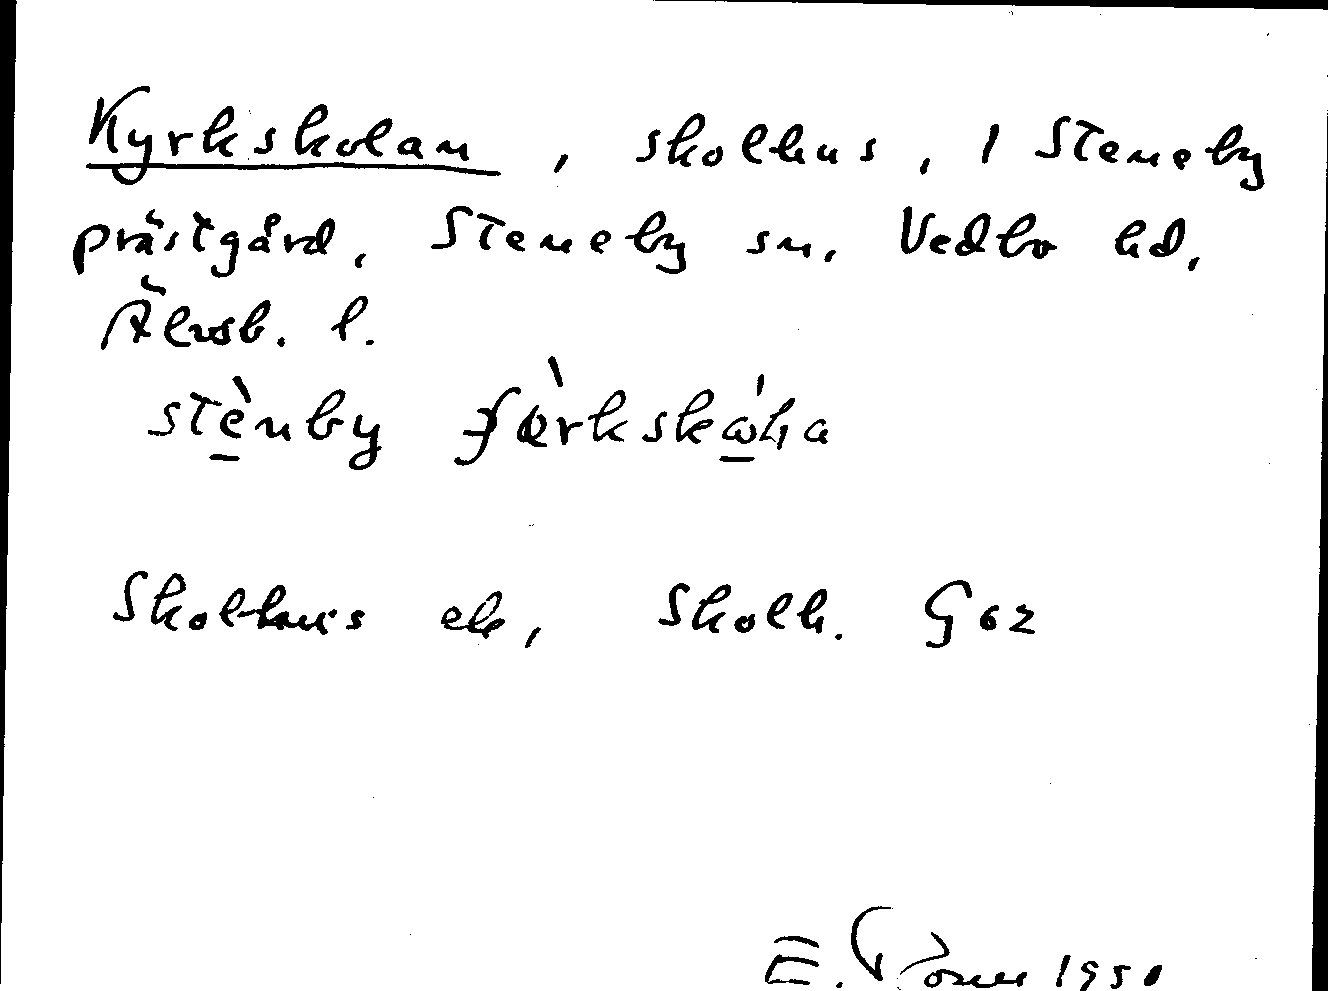 Kyrkskolan, skolhus, i Steneby
prästgård, Steneby sn. Vedbo hd,
Älvsb. l.
stènby
Skolhus ek, Skolh. G 62
E. 1950